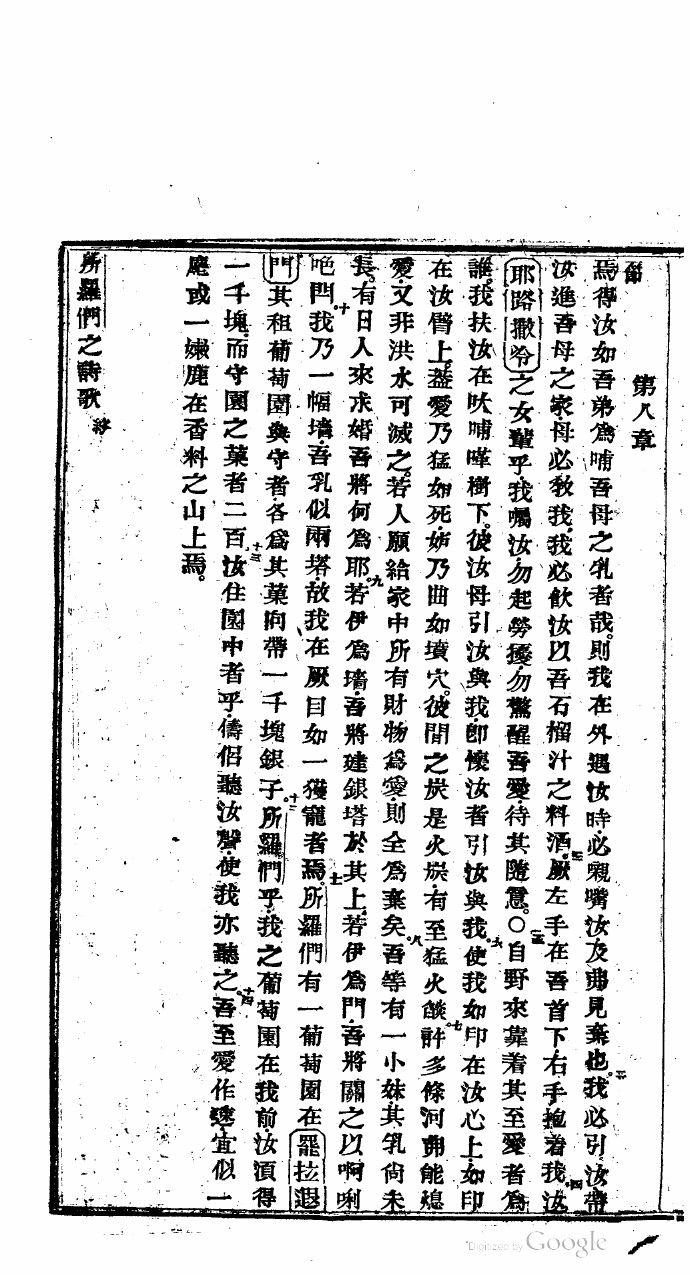 第八章
節
焉得汝如吾弟爲哺吾母之乳者哉則我在外遇汝時必親嘴汝及弗見棄也二我必引汝帶
汝進吾母之家母必教我我必飲汝以吾石榴汁之料酒三厥左手在吾首下右手抱着我四汝
耶路撒冷之女輩乎我囑汝勿起勞擾勿驚醒吾愛待其隨意。〇五自野來靠着其至愛者爲
誰我扶汝在吠哺嘩樹下彼汝母引汝與我卽懷汝者引汝與我六使我如印在汝心上如印
在汝臂上蓋愛乃猛如死妬乃曲如墳穴彼閒之炭是火炭有至猛火燄七許多條河弗能熄
愛又非洪水可滅之若人願給家中所有財物爲愛則全爲棄矣八吾等有一小妹其乳尚未
長有日人來求婚吾將何爲耶九若伊爲墻吾將建銀塔於其上若伊爲門吾將闢之以啊唎
吧門十我乃一幅墻吾乳似兩塔故我在厥目如一獲寵者焉十一所羅們有一葡萄園在罷拉遐
門其租葡萄園與守者各爲其菓向帶一千塊銀子十二所羅們乎我之葡萄園在我前汝須得
一千塊而守園之菓者二百十三汝住園中者乎儔侶聽汝聲使我亦聽之十四吾至愛作速宜似一
麀或一嫩鹿在香料之山上焉。
所羅們之詩歌 終
Digitized by Google